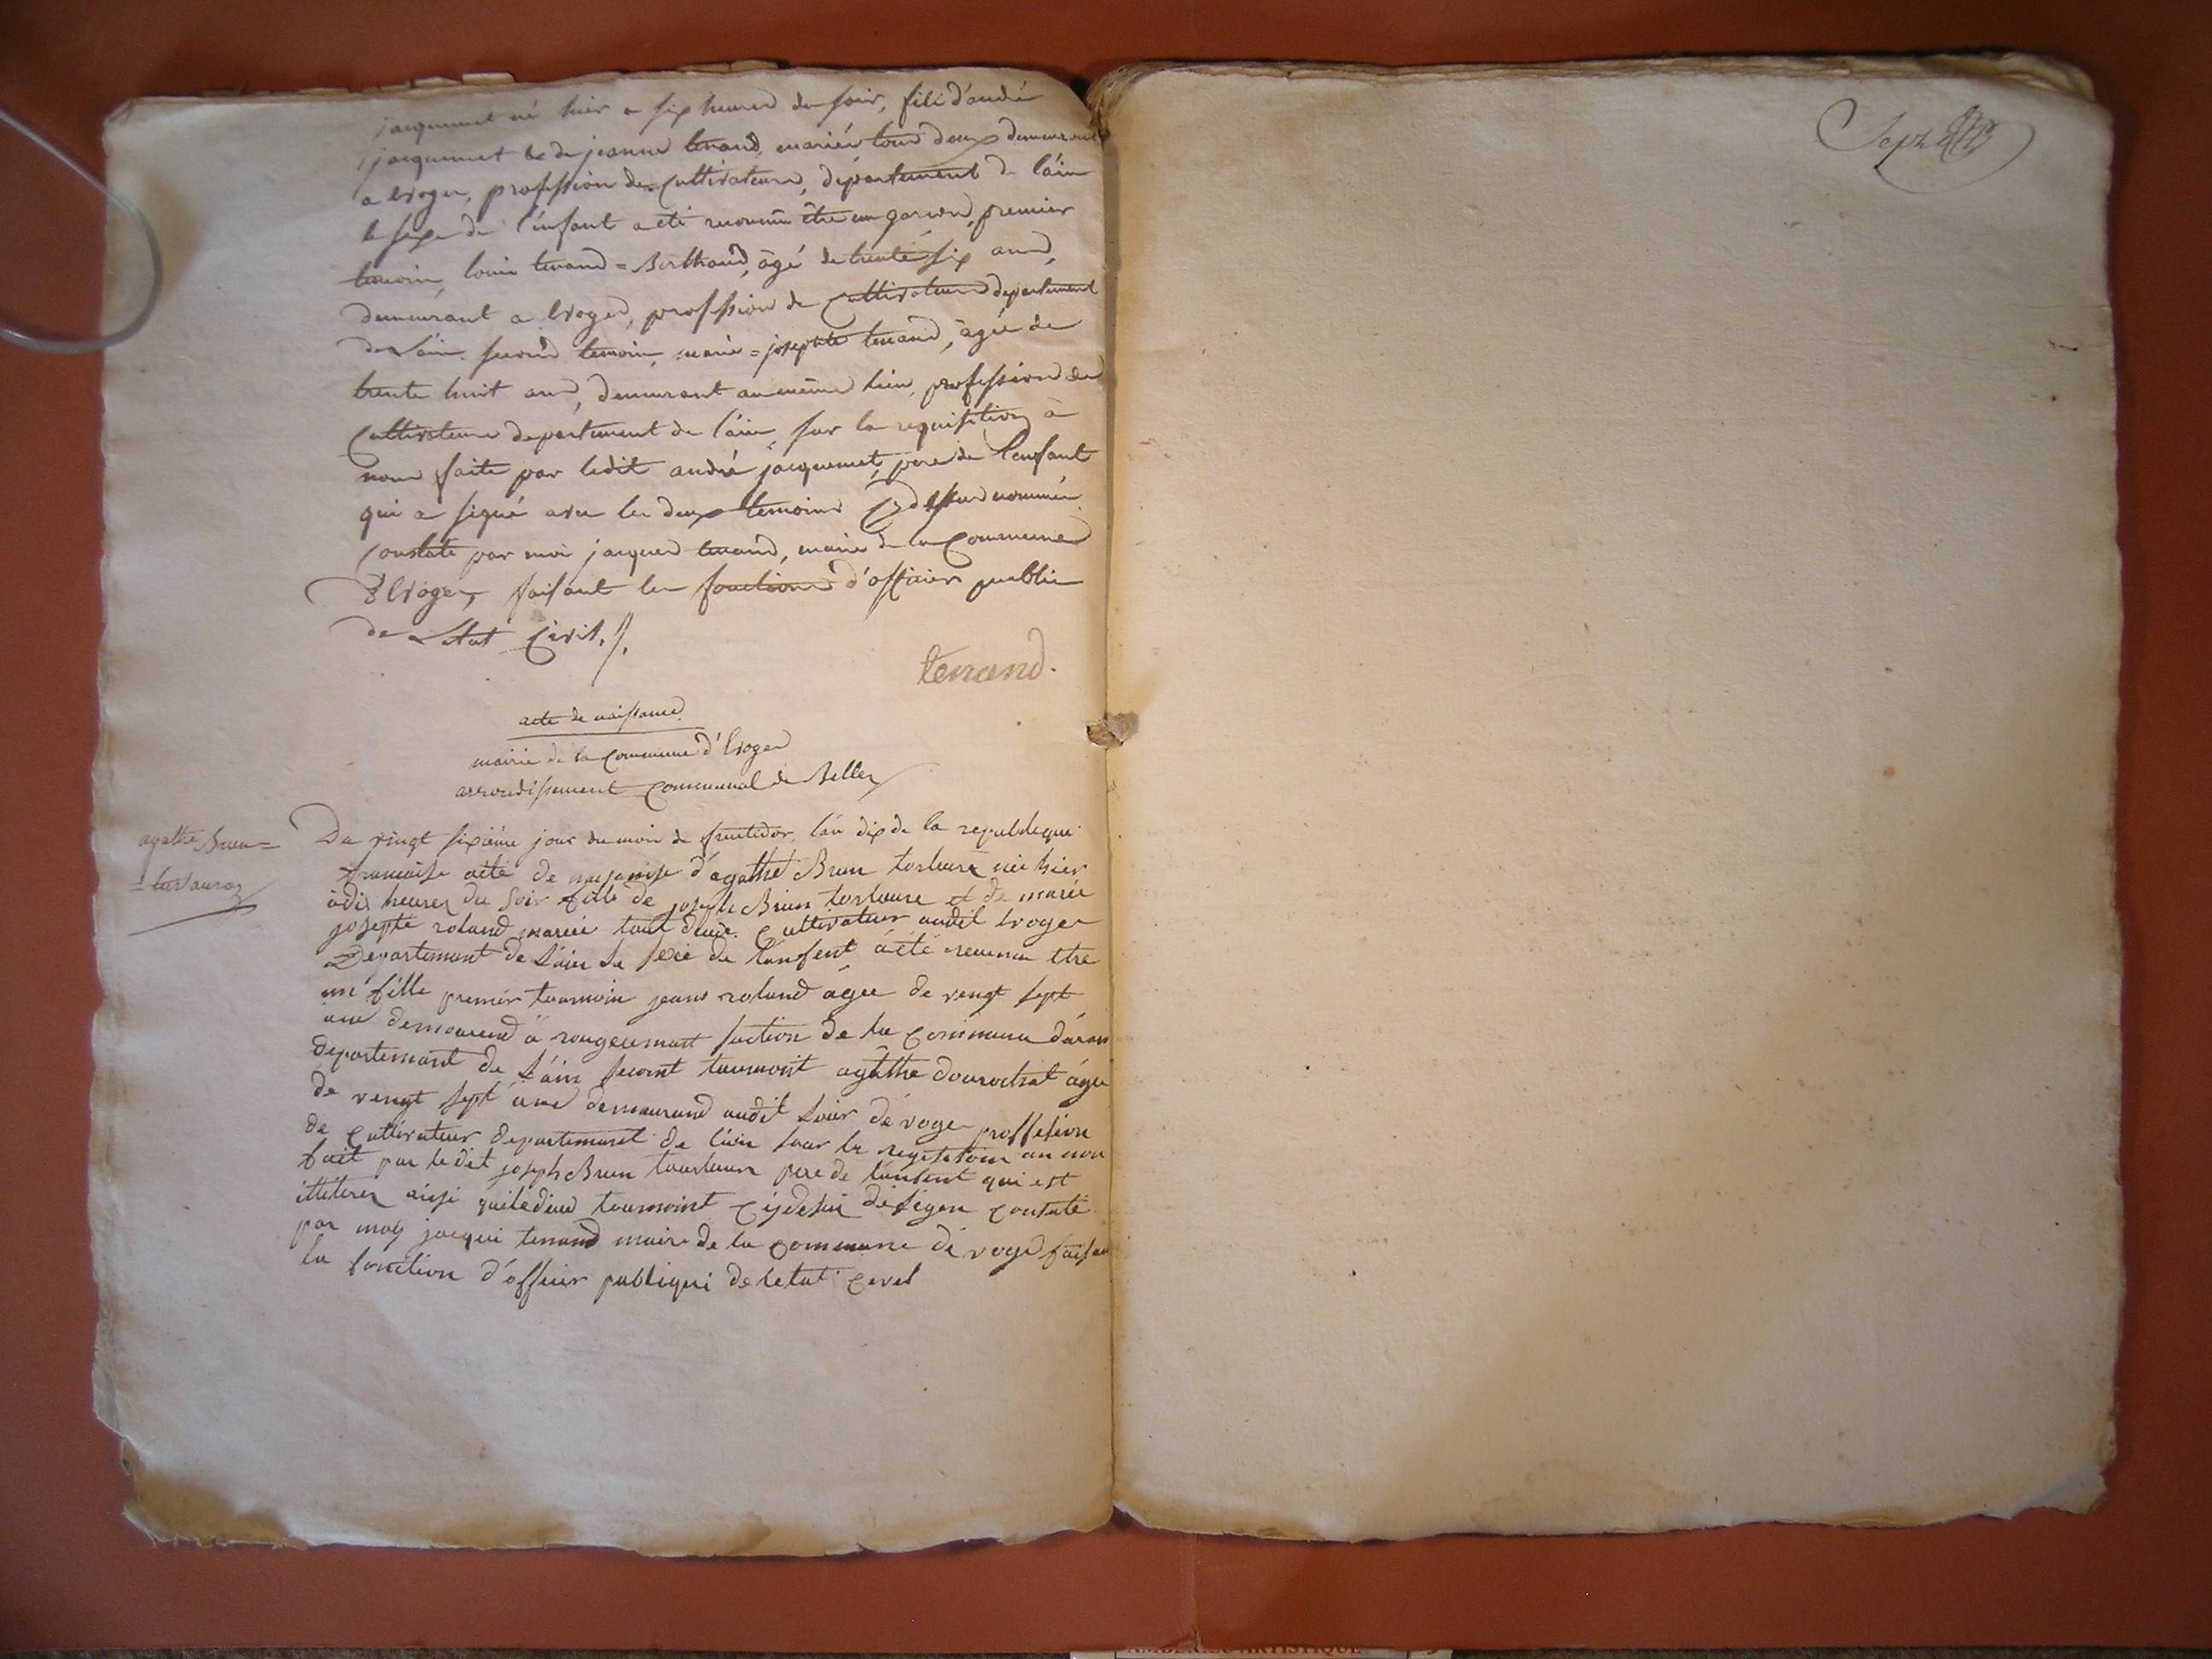 jacquemet né hier a six heures du soir, fils d'andré
jacquemet et de jeanne tenand, mariés tous deux demeurant
a Evoges, profession de Cultivateurs, département de l'ain
le sexe de l'enfant a été reconnu être un garcon, premier
temoin, louis tenand = Berthaud, âgé de trente six ans,
demeurant a Evoges, profession de Cultivateur departement
de L'ain. second temoin, marie = josephte tenand, âgée de
trente huit ans, demeurant au même lieu, profession de
Cultivateur departement de l'ain, sur la requisition à
nous faite par ledit andré jacquemet, pere de l'enfant
qui a signé avec les deux temoins Cy dessus nommés
Constaté par moi jacques tenand, maire de la Commune
d'Evoges, faisant les fonctions d'officier public
de L'etat Civil.
tenand.
acte de naissance
mairie de la Commune d'Evoges
arrondissement Communal de Belley
agathe Brun =
Du vingt sixième jour du mois de fructidor, l'an dix de la republique
francaise acte de d'agathe Brun née hier
à dix heures du soir fille de joseph Brun et de marie
josepte roland mariés tout deux Cultivateur audit Evoges
Departement de L'ain Le sexe de l'anfent à été reconnu etre
une fille premier toumoin jeans roland agée de vengt sept
ans demeurend à rougeumont section de la Commune d'aran
departemant de L'ain second toumoint agathe dourochat agée
de vengt sept ans demeurand audit Evoges proffesion
de Cultivateur departemant de l'ain sour la a nou
fait par le dit joseph Brun pere de l'anfent qui est
illiterer ainsi toumoint Cy desu désigne Constaté
par moy jacqui tenand maire de la Commune dévoge faisan
la fonction d'officier publiqui de letat Cevel